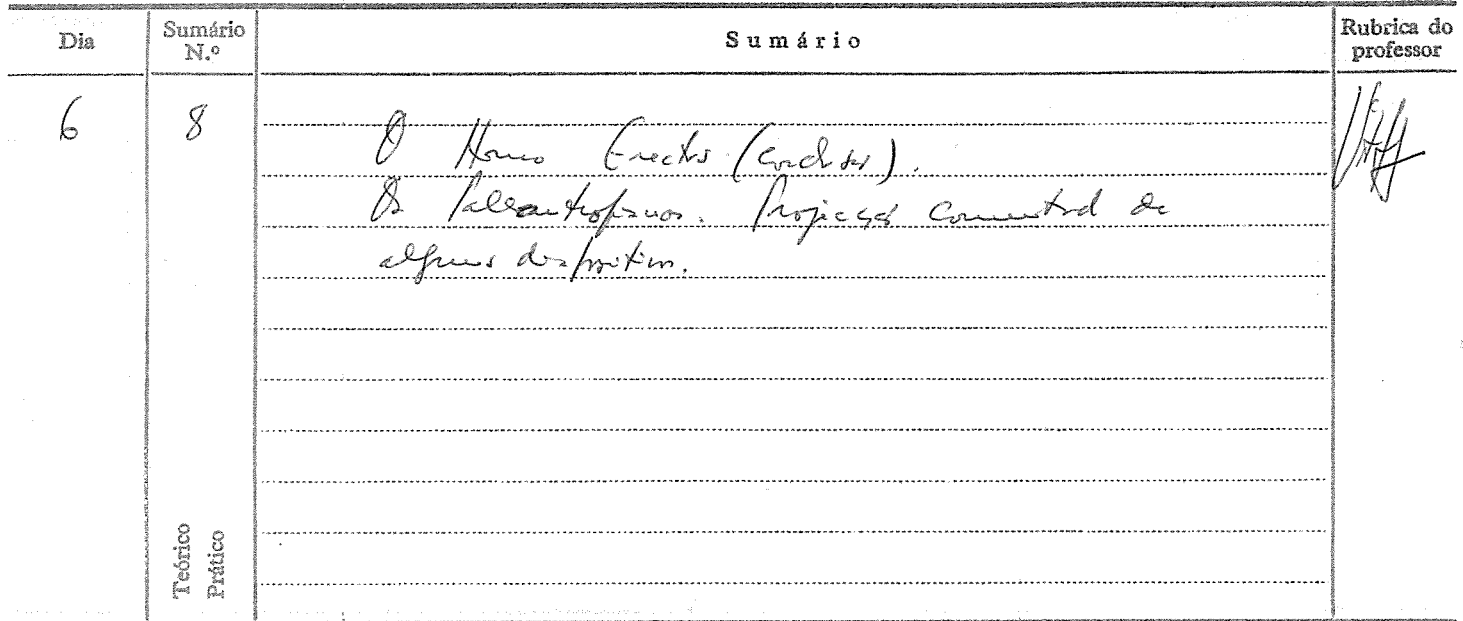 Dia
Sumário N.º
Sumário
Rubrica do professor
6
8
O Homo Erectus (conclusão).
Os Paleantropianos. Projecção comentada de
alguns diapositivos.
Teórico
Prático